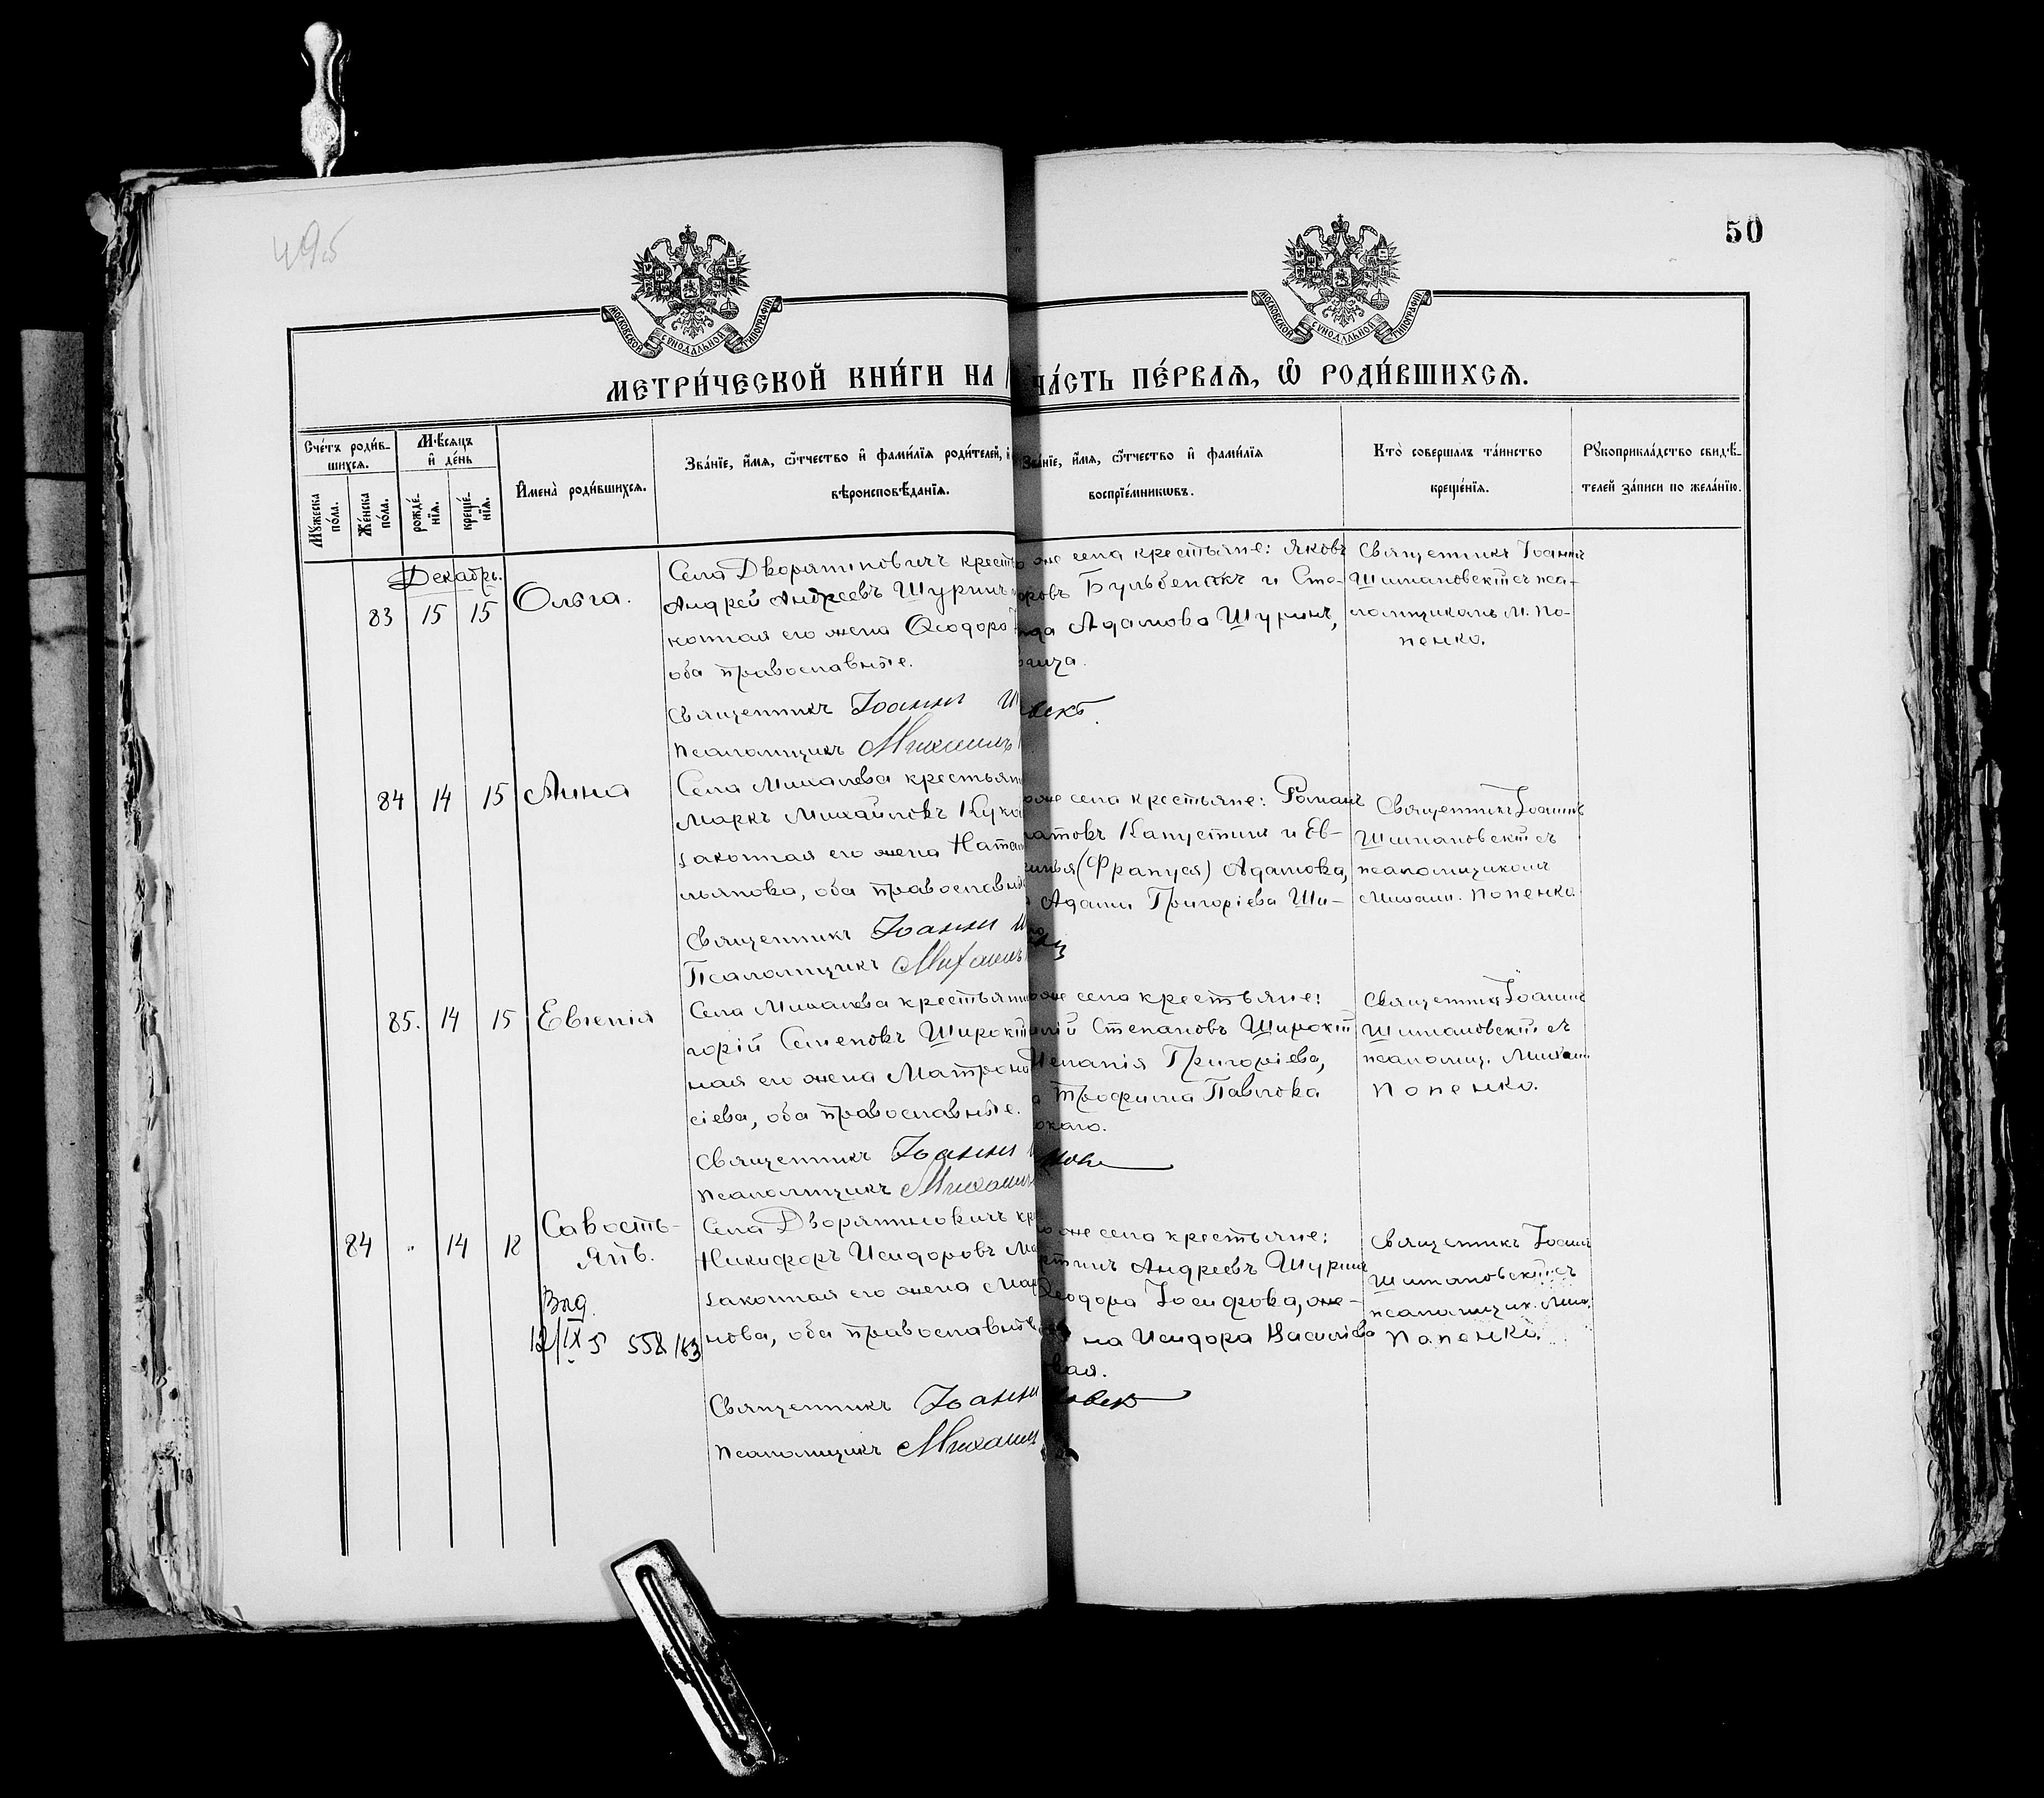 495
50
МОСКОВСКОЙ СѴНОДАЛЬНОЙ ТИПОГРАФІИ
МОСКОВСКОЙ СѴНОДАЛЬНОЙ ТИПОГРАФІИ
МЕТРИ́ЧЕСКОЙ КНИ́ГИ НА
ЧА́СТЬ ПЕ́РВАѦ, Ѽ РОДИ́ВШИХСѦ.
Сче́тъ роди́в-
шихсѧ.
Мꙋ́жеска
по́ла.
Же́нска
по́ла.
Мѣ́сѧцъ
и҆ де́нь
рожде́-
нїѧ.
креще́-
нїѧ.
И҆мена̀ роди́вшихсѧ.
Зва́нїе, и҆́мѧ, ѻ҆́тчество и҆ фами́лїѧ роди́телей, и҆
вѣроисповѣ́данїѧ.
Зва́нїе, и҆́мѧ, ѻ҆́тчество и҆ фами́лїѧ
воспрїе́мникѡвъ.
Кто̀ соверша́лъ та́инство
креще́нїѧ.
Рꙋкоприкла́дство свидѣ́-
телей за́писи по жела́нїю.
Декабрь.
83 15 15 Ольга.
Села Дворятиновичъ крест
Андрей Андреевъ Шуринъ
конная его жена Ѳеодоро
оба православные.
Священникъ Іоаннъ Ш
Псаломщикъ Михаилъ
же села крестьяне: Яковъ
оровъ Бульбенокъ и Сте-
Адамова Шуринъ,
вица.
Священникъ Іоаннъ
Шимановскій съ пса-
ломщикомъ М. По-
пенко.
84 14 15 Анна
Села Михалева крестьян
Маркъ Михайловъ Кук
законная его жена Ната
льянова, оба православн
Священникъ Іоаннъ Ш
Псаломщикъ Михаилъ
оже села крестьяне: Романъ
Капустинъ и Ев-
(Францея) Адамова,
Адама Григоріева Ши-
Священникъ Іоаннъ
Шимановскій съ
псаломщикомъ
Михаил. Попенко
85. 14 15 Евгенія
Села Михалева крестьян
горій Семеновъ Широкій
ная его жена Матрона
сіева, оба православные.
Священникъ Іоаннъ
Псаломщикъ Михаилъ
оже села крестьяне:
Степановъ Широкій
Меланія Григоріева,
Трофима Павлова
окаго.
Священникъ Іоаннъ
Шимановскій съ
псаломщ. Михаил.
Попенко.
84 " 14 18 Савость-
янъ.
Выд.
12/IX 5 558/163
Села Дворятиновичъ кр
Никифоръ Исидоровъ Ма
законная его жена Мар
нова, оба православные
Священникъ Іоаннъ
Псаломщикъ Михаилъ
оже села крестьяне:
Андреевъ Шуринъ
Ѳеодора Іосифова, же-
на Исидора Василіева
вая.
Священникъ Іоаннъ
Шимановскій съ
псаломщик. Мих.
Попенко.